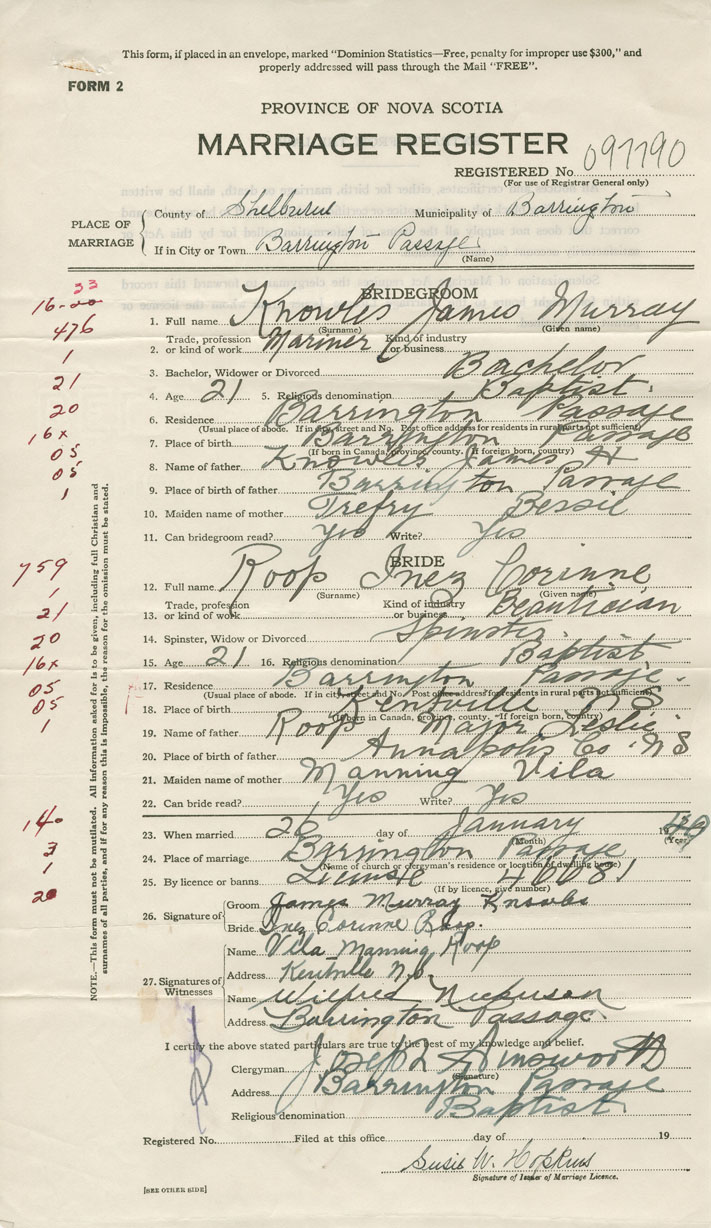 This form, if placed in an envelope, marked "Dominion Statistics—Free, penalty for improper use $300," and
properly addressed will pass through the Mail "FREE".
FORM 2
PROVINCE OF NOVA SCOTIA
MARRIAGE REGISTER
REGISTERED No. 097790
(For use of Registrar General only)
PLACE OF MARRIAGE
County of Shelburne Municipality of Barrington
If in City or Town Barrington Passage
(Name)
33
16-20
BRIDEGROOM
476
1. Full name Knowles James Murray
(Surname) (Given name)
1
2. Trade, profession or kind of work Mariner Kind of industry or business
3. Bachelor, Widower or Divorced Bachelor
21
4. Age 21 5. Religious denomination Baptist.
20
6. Residence Barrington Passage
(Usual place of abode. If in city, street and No. Post office address for residents in rural parts not sufficient)
16x
7. Place of birth Barrington Passage
(If born in Canada, province, county. If foreign born, country)
05
8. Name of father Knowles James H
05
9. Place of birth of father Barrington Passage
1
10. Maiden name of mother Trefry Bessie
11. Can bridegroom read? Yes Write? Yes
BRIDE
759
12. Full name Roop Inez Corinne
(Surname) (Given name)
1
13. Trade, profession or kind of work Kind of industry or business Beautician
21
14. Spinster, Widow or Divorced Spinster.
20
15. Age 21 16. Religious denomination Baptist
16x
17. Residence Barrington Passage.
(Usual place of abode. If in city, street and No. Post office address for residents in rural parts not sufficient)
05
18. Place of birth Kentville N S
(If born in Canada, province, county. If foreign born, country)
05
19. Name of father Roop Major Leslie
1
20. Place of birth of father Annapolis Co. N S
21. Maiden name of mother Manning Vila
22. Can bride read? Yes Write? Yes
14
23. When married 26 day of January 1940
(Month) (Year)
3
24. Place of marriage Barrington Passage
(Name of church or clergyman's residence or location of dwelling house)
1
25. By licence or banns License 46681
(If by licence, give number)
20
26. Signature of
Groom James Murray Knowles
Bride Inez Corinne Roop.
27. Signatures of Witnesses
Name Vila Manning Roop
Address Kentville N.S.
Name Wilfred Nickerson
Address Barrington Passage.
I certify the above stated particulars are true to the best of my knowledge and belief.
Clergyman Joseph Ainsworth
(Signature)
Address Barrington Passage
Religious denomination Baptist
Registered No. Filed at this office day of 19
Susie W. Hopkins
Signature of Issuer of Marriage Licence.
[SEE OTHER SIDE]
NOTE.—This form must not be mutilated. All information asked for is to be given, including full Christian and
surnames of all parties, and if for any reason this is impossible, the reason for the omission must be stated.